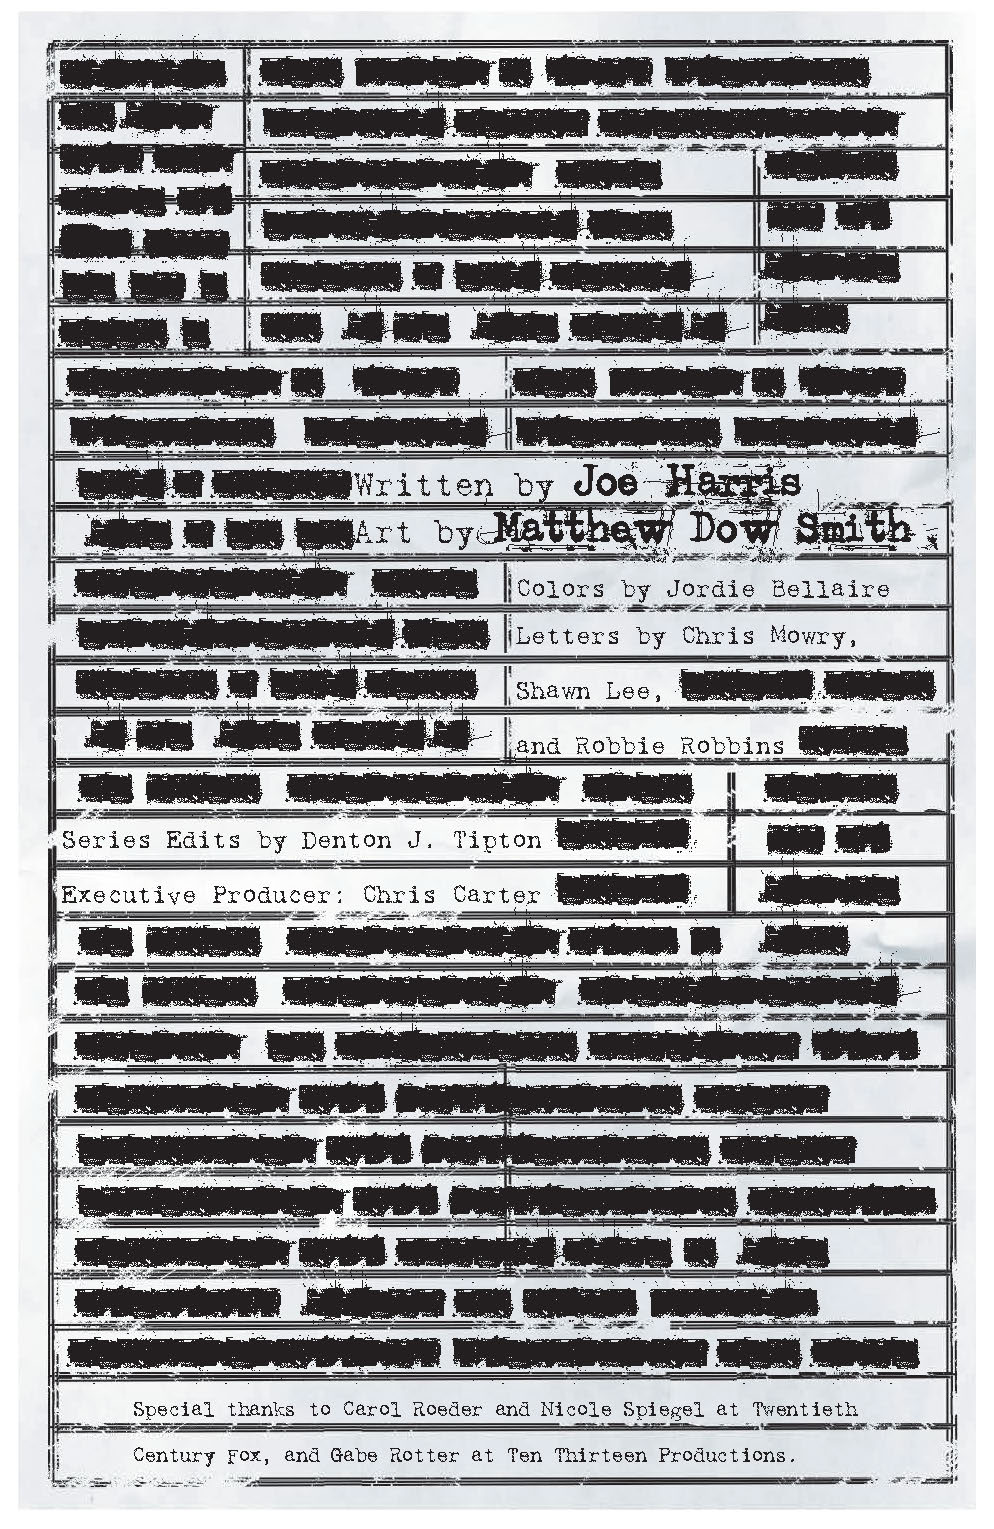 Written by Joe Harris
Art by Matthew Dow Smith
Colors by Jordie Bellaire
Letters by Chris Mowry,
Shawn Lee,
and Robbie Robbins
Series Edits by Denton J. Tipton
Executive Producer: Chris Carter
Special thanks to Carol Roeder and Nicole Spiegel at Twentieth
Century Fox, and Gabe Rotter at Ten Thirteen Productions.